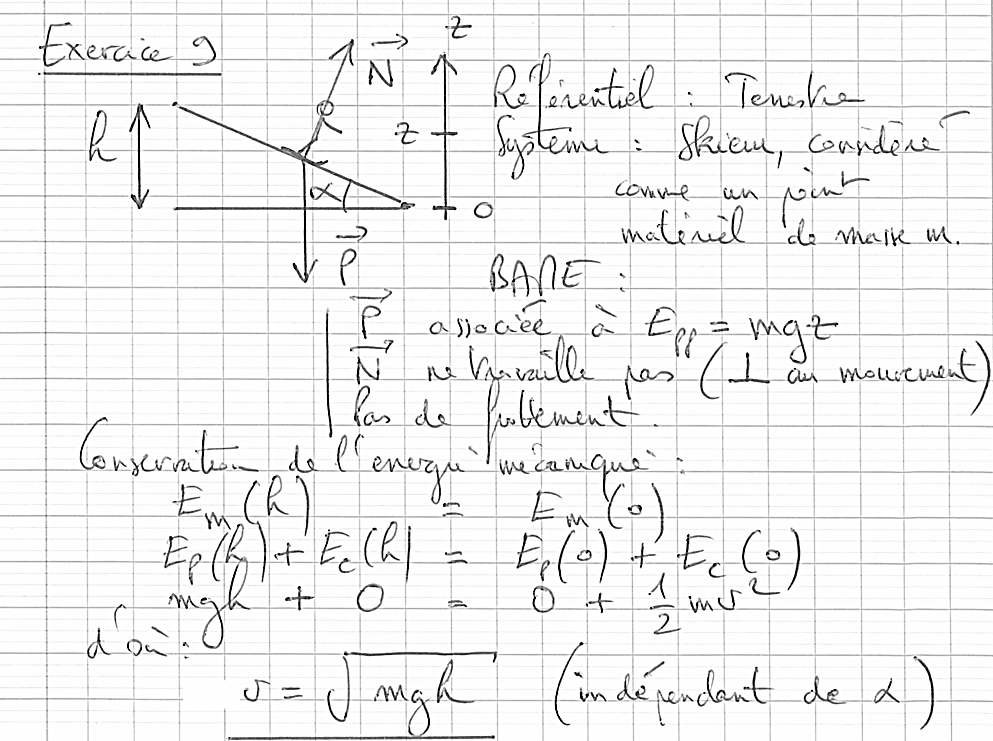 Exercice 9
N
z
h
z
α
0
P
Référentiel : Terrestre
Système : Skieur, considéré
comme un point
matériel de masse m.
BAME :
P associée à Epp = mgz
N ne travaille pas (⊥ au mouvement)
Pas de frottement.
Conservation de l'energie mécanique :
Em(h) = Em(0)
Ep(h) + Ec(h) = Ep(0) + Ec(0)
mgh + 0 = 0 + 1/2 mv²
d'où :
v = √mgh (indépendant de α)